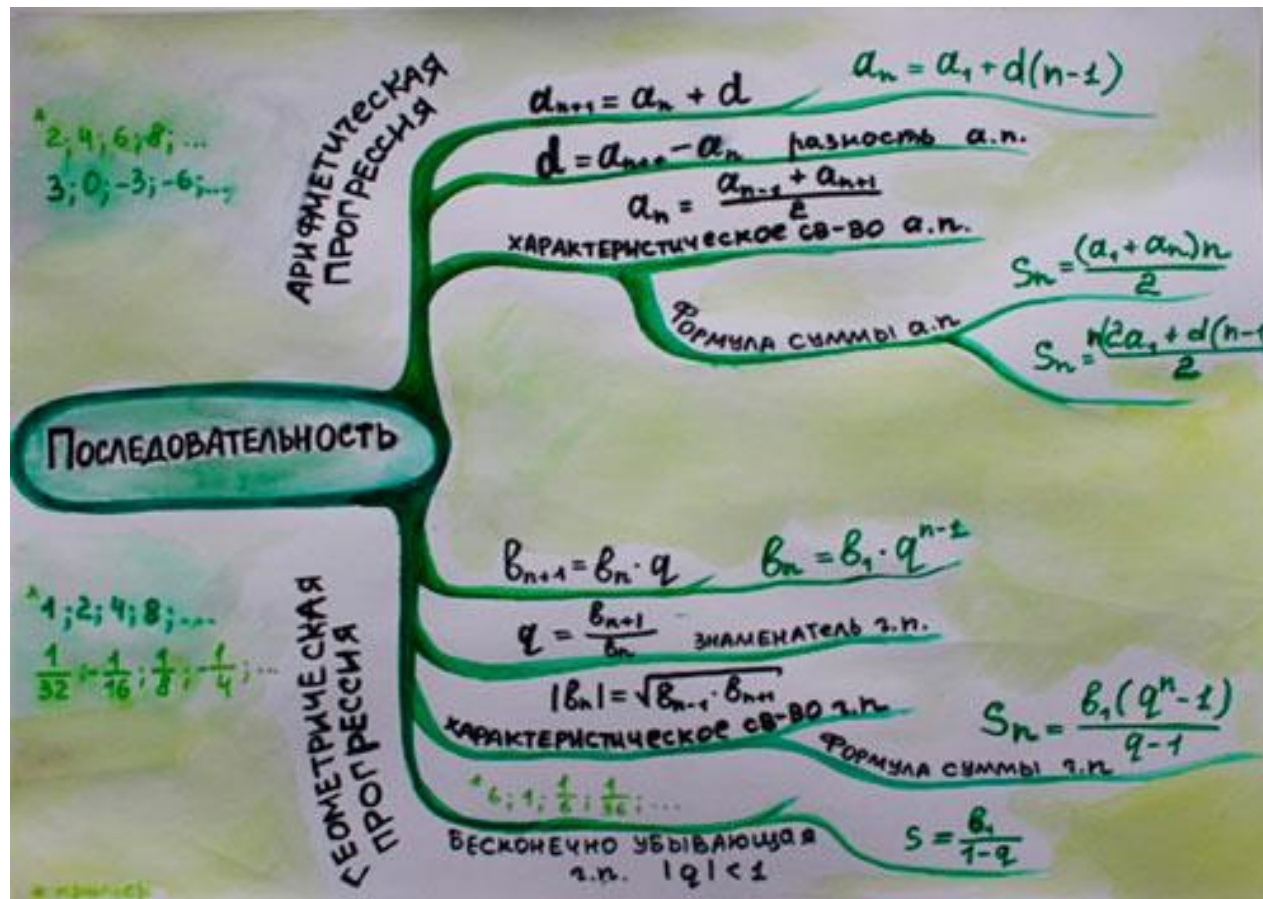 АРИФМЕТИЧЕСКАЯ
ПРОГРЕССИЯ
* 2; 4; 6; 8; ...
3; 0; -3; -6; ...
aₙ₊₁ = aₙ + d
aₙ = a₁ + d(n-1)
d = aₙ₊₁ - aₙ разность а.п.
aₙ = (aₙ₋₁ + aₙ₊₁)/2
ХАРАКТЕРИСТИЧЕСКОЕ СВ-ВО а.п.
ФОРМУЛА СУММЫ а.п
Sₙ = (a₁ + aₙ)n/2
Sₙ = n(2a₁ + d(n-1/2
ПОСЛЕДОВАТЕЛЬНОСТЬ
ГЕОМЕТРИЧЕСКАЯ
ПРОГРЕССИЯ
* 1; 2; 4; 8; ...
1/32; -1/16; 1/8; -1/4; ...
вₙ₊₁ = вₙ · q
вₙ = в₁ · qⁿ⁻¹
q = вₙ₊₁/вₙ ЗНАМЕНАТЕЛЬ г.п.
|вₙ| = √(вₙ₋₁ · вₙ₊₁)
ХАРАКТЕРИСТИЧЕСКОЕ СВ-ВО г.п.
ФОРМУЛА СУММЫ г.п
Sₙ = в₁(qⁿ - 1)/(q - 1)
* 6; 1; 1/6; 1/36; ...
БЕСКОНЕЧНО УБЫВАЮЩАЯ
г.п. |q| < 1
S = в₁/(1-q)
* пример